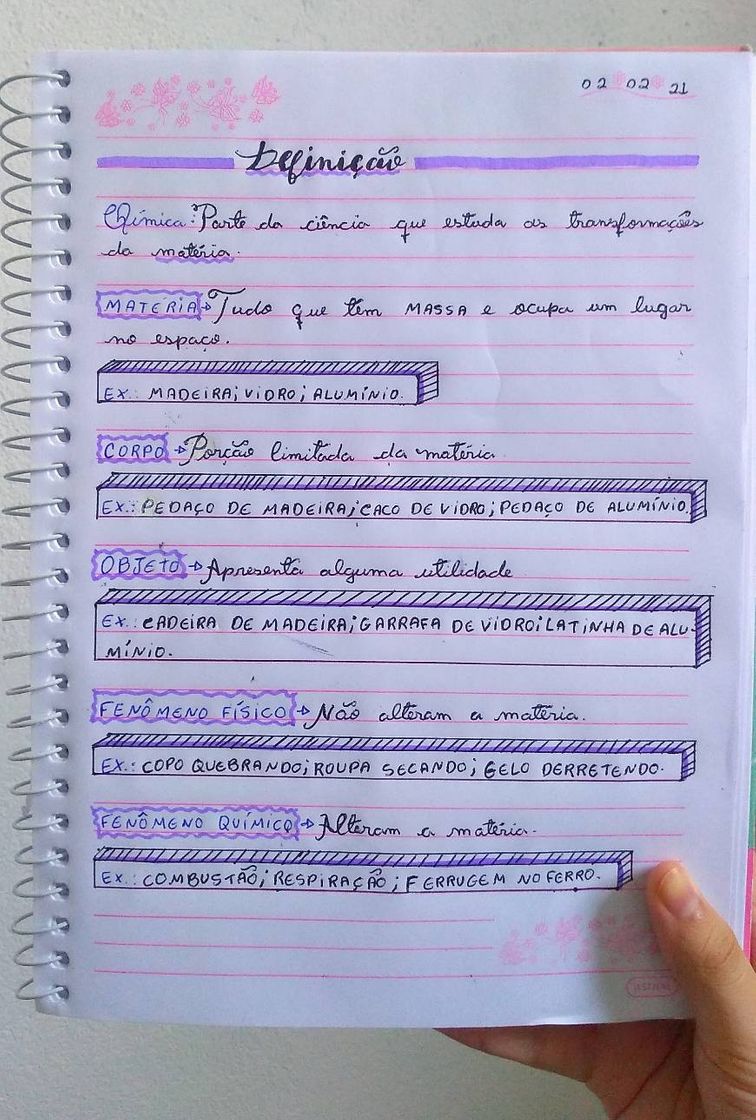 02 02 21
Definição
Química: Parte da ciência que estuda as transformações
da matéria.
MATÉRIA → Tudo que têm MASSA e ocupa um lugar
no espaço.
EX.: MADEIRA; VIDRO; ALUMÍNIO.
CORPO → Porção limitada da matéria
EX.: PEDAÇO DE MADEIRA; CACO DE VIDRO; PEDAÇO DE ALUMÍNIO.
OBJETO → Apresenta alguma utilidade
EX.: CADEIRA DE MADEIRA; GARRAFA DE VIDRO; LATINHA DE ALU-
MÍNIO.
FENÔMENO FÍSICO → Não alteram a matéria.
EX.: COPO QUEBRANDO; ROUPA SECANDO; GELO DERRETENDO.
FENÔMENO QUÍMICO → Alteram a matéria.
EX.: COMBUSTÃO; RESPIRAÇÃO; FERRUGEM NO FERRO.